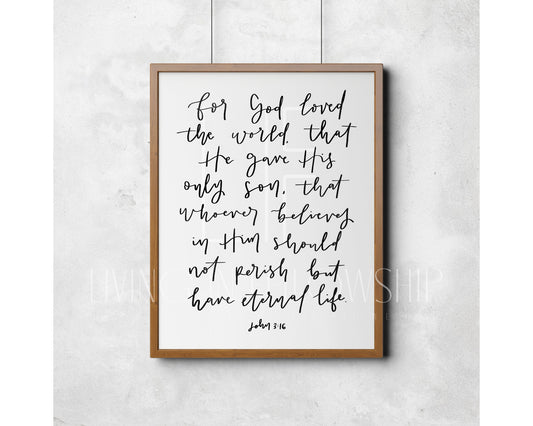 for God loved
the world, that
He gave His
only son, that
whoever believes
in Him should
not perish but
have eternal life.
John 3:16